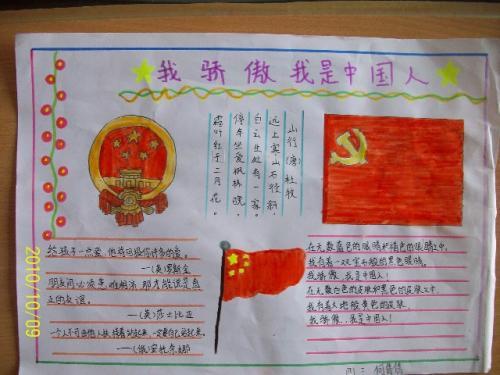 我骄傲我是中国人
山行(唐)杜牧
远上寒山石径斜,
白云生处有一家。
停车坐爱枫林晚,
霜叶红于二月花。
给孩子一点爱,他将回报你许多的爱。
——(英)
朋友间必须是
正的友谊。
——(英)莎士比亚
——(俄)
在无数蓝色的眼睛和褐色的眼睛之中,
我有着一双宝石般的黑色眼睛,
我骄傲,我是中国人!
在无数白色的皮肤和黑色的皮肤之中,
我有着大地般黄色的皮肤,
我骄傲,我是中国人!
2010/10/09